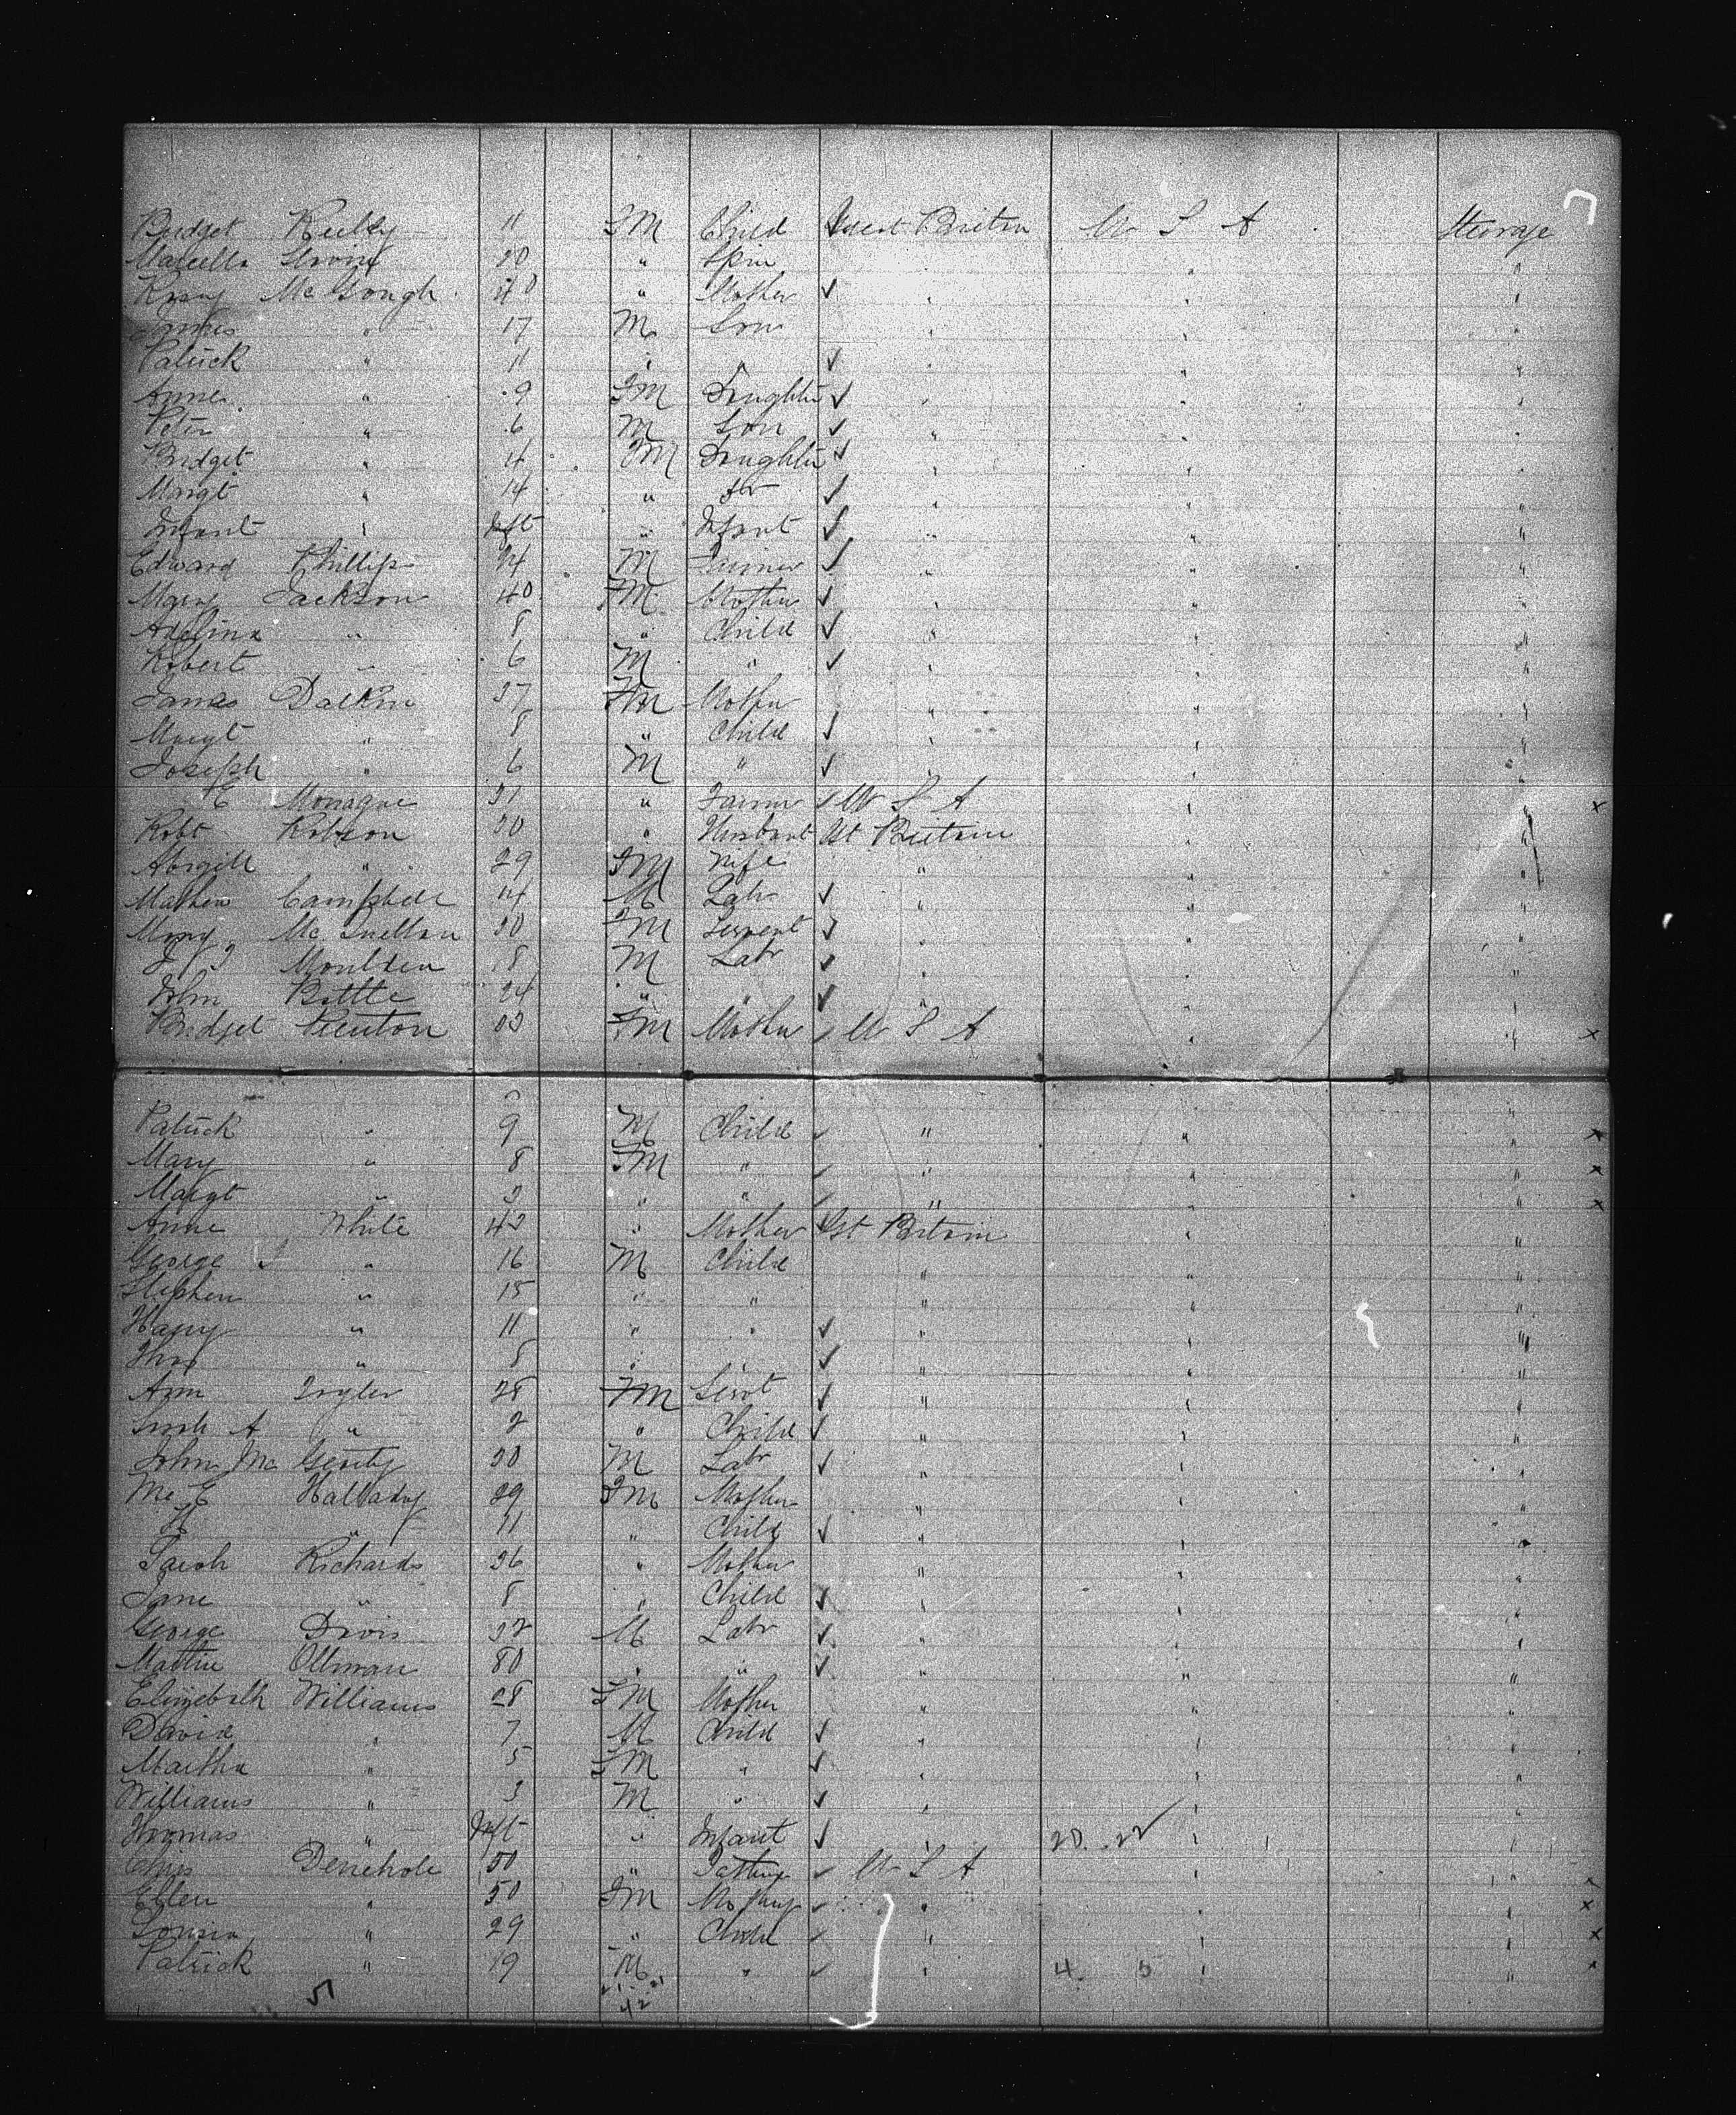 Bridget Reilly 11 FM Child Great Britain U S A Steerage
Marcella 20 " Spin " "
Rosy Mc Gough 40 " Mother " " "
James " 17 M Son " " "
Patrick " 11 " " " " "
Anne " 9 FM Daughter " " "
Peter " 6 M Son " " "
Bridget " 4 FM Daughter " " "
Margt " 14 " Do " " "
Infant " Inft " Infant " " "
Edward Phillips 24 M Farmer " " "
Mary Jackson 40 FM Mother " " "
Adelina " 8 " Child " " "
Robert " 6 M " " " "
James Dalkin 37 FM Mother " " "
Margt " 8 " Child " " "
Joseph " 6 M " " " "
E Monague 31 " Farmer U S A " " x
Robt Robson 30 " Husbant Gt Britain " "
Abigill " 29 FM Wife " " "
Mathew Campbell 14 M Labr " " "
Mary Mc 30 FM Servent " " "
Moulden 18 M Labr " " "
John Bottle 24 " " " " "
Bridget Renton FM Mother U S A " " x
Patrick " 9 M Child " " " x
Mary " 8 FM " " " " x
Margt " 3 " " " " " x
Anne White 42 " Mother Gt Britain " "
George J " 16 M Child " " "
Stephen " 15 " " " " "
Harry " 11 " " " " "
Thos " 8 " " " " "
Ann Taylor 28 FM Servt " " "
Sarah A " 2 " Child " " "
John Mc Gerity 30 M Labr " " "
Mc E Halladay 29 FM Mother " " "
H " 11 " Child " " "
Sarah Richards 36 " Mother " " "
Jane " 8 " Child " " "
George Davis 32 M Labr " " "
Mattie Ollman " " " " "
Elizebath Williams 28 FM Mother " " "
David " 7 M Child " " "
Martha " 5 FM " " " "
Williams " 3 M " " " "
Thomas " Inft " Infant " 20. 22 " "
Chris Denehole 50 " U S A " " x
Ellen " 50 FM " " " x
Louisa " 29 " Child " " " x
Patrick " 19 M " " 4. 5 " " x
51 42